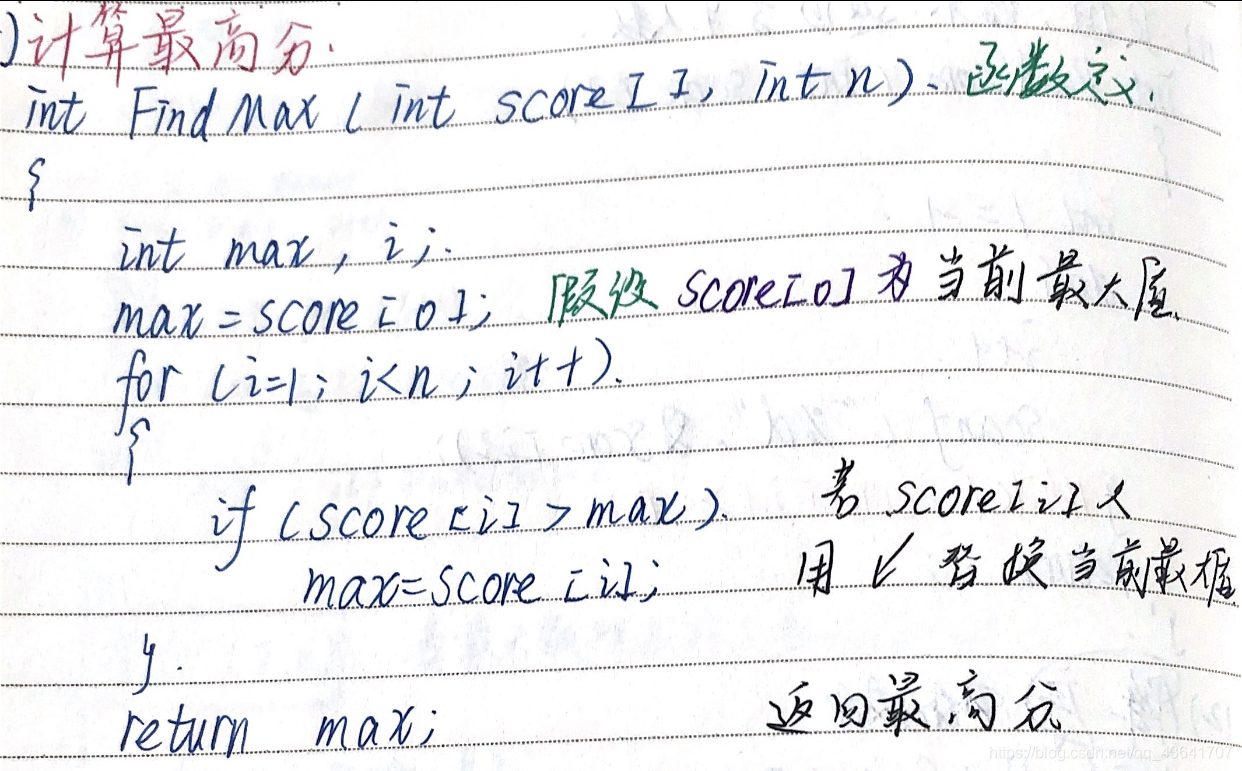 )计算最高分.
int FindMax ( int score[ ], int n ). 函数定义.
{
int max, i;.
max = score [ 0 ]; 假设 score[0] 为 当前最大值.
for (i=1; i<n; i++).
{
if (score [i] > max). 若 score[i]大
max=score [i]; 用 ↙ 替换当前最大值
}.
return max; 返回最高分
https://blog.csdn.net/qq_46641707